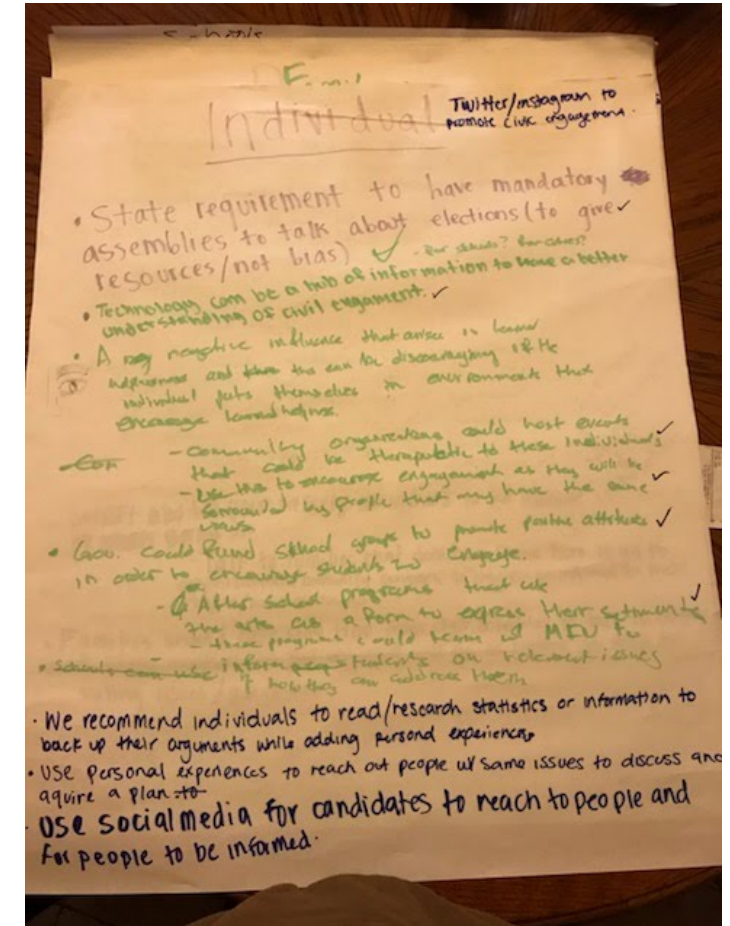 Schools
Individual
Twitter/instagram to
promote civic engagement.
• State requirement to have mandatory
assemblies to talk about elections (to give ✓
resources/not bias) ✓ - For schools? For cities?
• Technology can be a hub of information to have a better
understanding of civil engament. ✓
• A negative influence that arises is learned
and this can be discouraging if the
individual puts themselves in environments that
encourage learned
- Community organizations could host events ✓
that could be therapeutic to these individuals
- Use this to encourage engagement as they will be ✓
surrounded by people that may have the same
views
• Gov. could fund school groups to promote positive attitudes ✓
in order to encourage students to engage.
- After school programs that use ✓
the arts as a form to express their
- these programs could team w/ to
• schools can use inform students on relevant issues
how they can address them
• We recommend individuals to read/research statistics or information to
back up their arguments while adding personal experiences
• USE personal experiences to reach out people w/ same issues to discuss and
aquire a plan to
USE social media for candidates to reach to people and
for people to be informed.